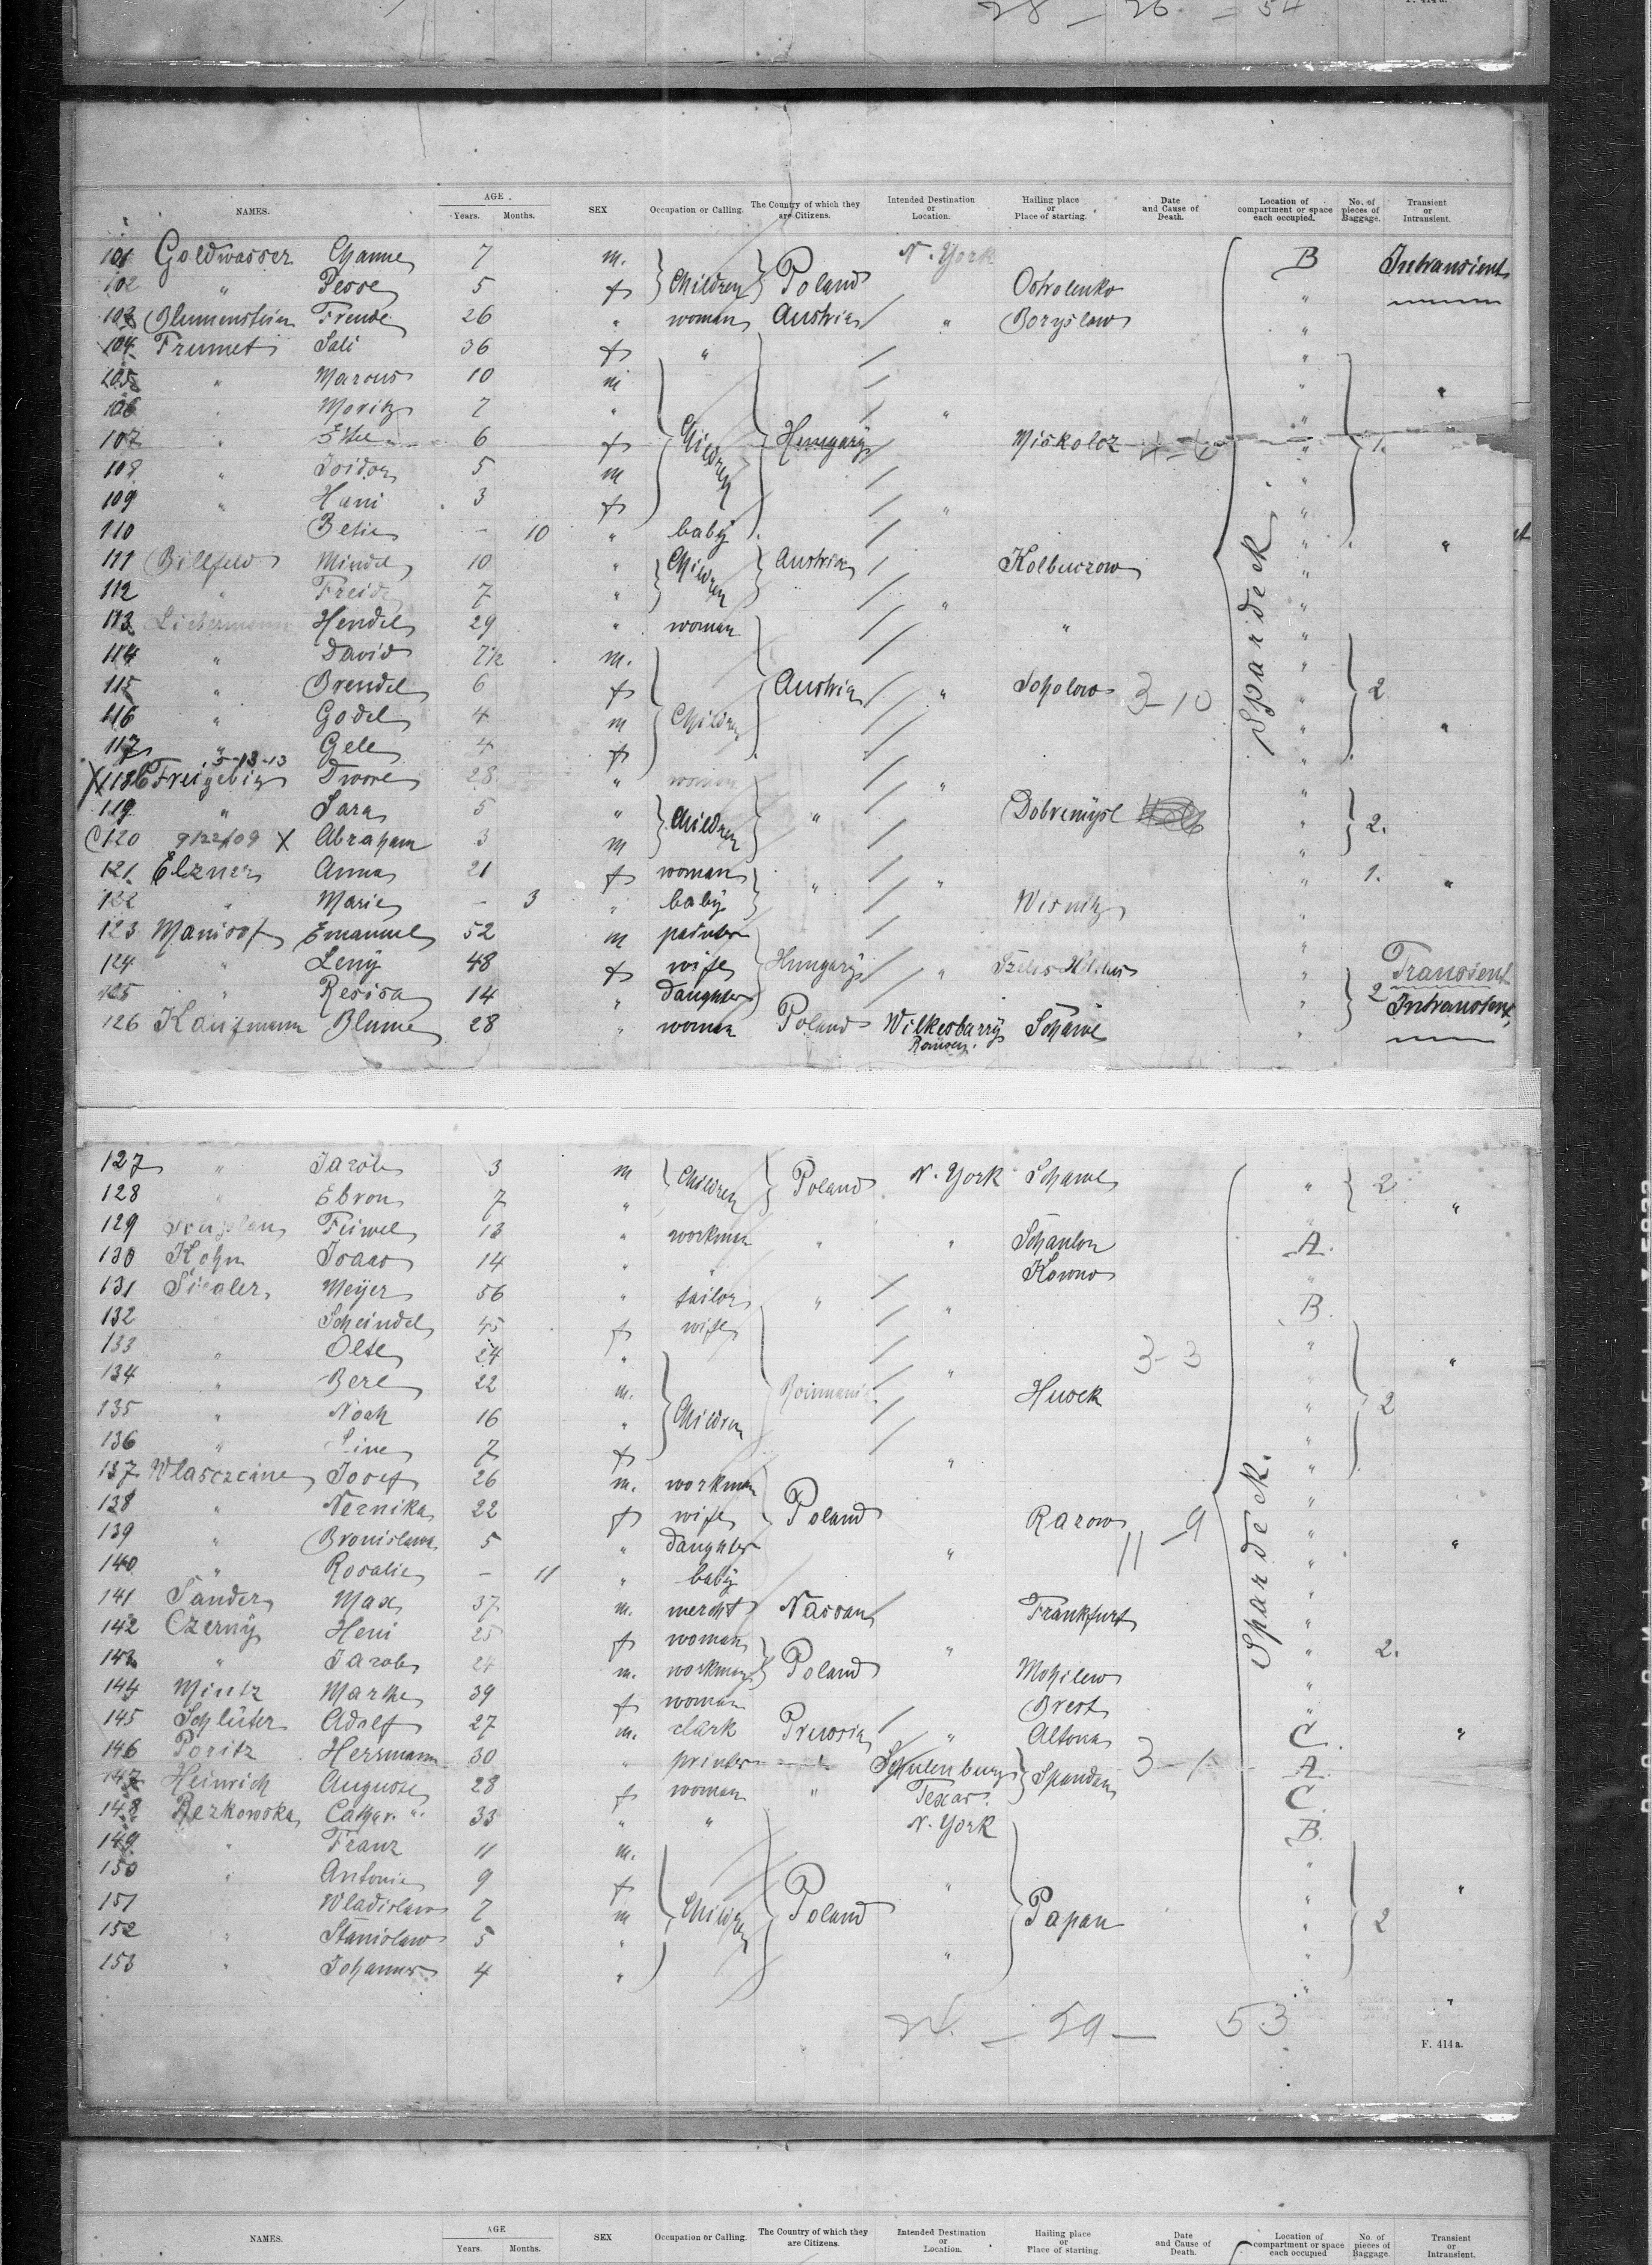 28 — 26 — 54
F. 414a.
NAMES. AGE. Years. Months. SEX Occupation or Calling. The Country of which they are Citizens. Intended Destination or Location. Hailing place or Place of starting. Date and Cause of Death. Location of compartment or space each occupied. No. of pieces of Baggage. Transient or Intransient.
101 Goldwasser Channe 7 m. Children Poland N. York B Intransient
102 " Pesse 5 f Ostrolenko "
103 Blumenstein Freude 26 " woman Austria " Boryslaw "
104 Frumet Sali 36 f " "
105 " Marcus 10 m "
106 " Moritz 7 " " "
107 " Etel 6 f Children Hungary Miskolcz 4-6 " 1.
108 " Isidor 5 m "
109 " Hani 3 f " "
110 Betie - 10 " baby "
111 Billfeld Mindel 10 " Children Austria Kolbuczow "
112 " Freide 7 " " "
113 Liebermann Hendel 29 " woman " "
114 " David 7½ m. "
115 " Brendel 6 f Austria " Sokolow 3-10 " 2
116 " Godel 4 m Children "
117 " Gele 4 f "
5-13-13
X 118 C Freigebig Dwore 28 " woman " "
119 " Sara 5 " Children " Dobremysl "
C 120 9/22/09 X Abraham 3 m " 2.
121 Elzner Anna 21 f woman " " " 1. "
122 " Marie - 3 " baby Wisnitz "
123 Manisof Emanuel 52 m painter "
124 " Leny 48 f wife Hungary " " Transient
125 " Resisa 14 " daughter " 2 Intransient
126 Kaufmann Blume 28 " woman Poland Wilkesbarry Schawe "
Spardeck.
127 " Jacob 3 m Children Poland N. York Schawe " 2
128 " Ebron 7 " "
129 Feiwel 13 " workman " " Schaulen A.
130 Kohn Isaac 14 " " Kowno "
131 Siegler, Meyer 56 " tailor " " B.
132 " Scheindel 45 f wife
133 " Olte 24 " 3-3 "
134 " Berl 22 m. Roumania " Husck "
135 " Noah 16 " Children " 2
136 " Line 7 f "
137 Wlasczcine Josef 26 m. workman "
138 " Nernika 22 f wife Poland Rarow "
139 " Bronislawa 5 " daughter " 11-9 " "
140 " Rosalie - 11 " baby "
141 Sander Max 37 m. mercht Nassau Frankfurt "
142 Czerny Heni 25 f woman " " 2.
143 " Jacob 24 m. workman Poland Mohilew
144 Mintz Marthe 39 f woman Brest "
145 Schlüter Adolf 27 m. clark Preussia " Altona C. "
146 Poritz Herrmann 30 " printer " Schulenburg Texas. Spandau 3-1 A
147 Heinrich Auguste 28 f woman " C.
148 Rezkowska Cathar. 33 " " N. York B.
149 " Franz 11 m. "
150 " Antonie 9 f " "
151 Wladislaw 7 m Children Poland Papan "
152 " Stanislaw 5 " " 2
153 " Johannes 4 " " "
Spardeck.
24. — 29 — 53
F. 414a.
NAMES. AGE Years. Months. SEX Occupation or Calling. The Country of which they are Citizens. Intended Destination or Location. Hailing place or Place of starting. Date and Cause of Death. Location of compartment or space each occupied No. of pieces of Baggage. Transient or Intransient.